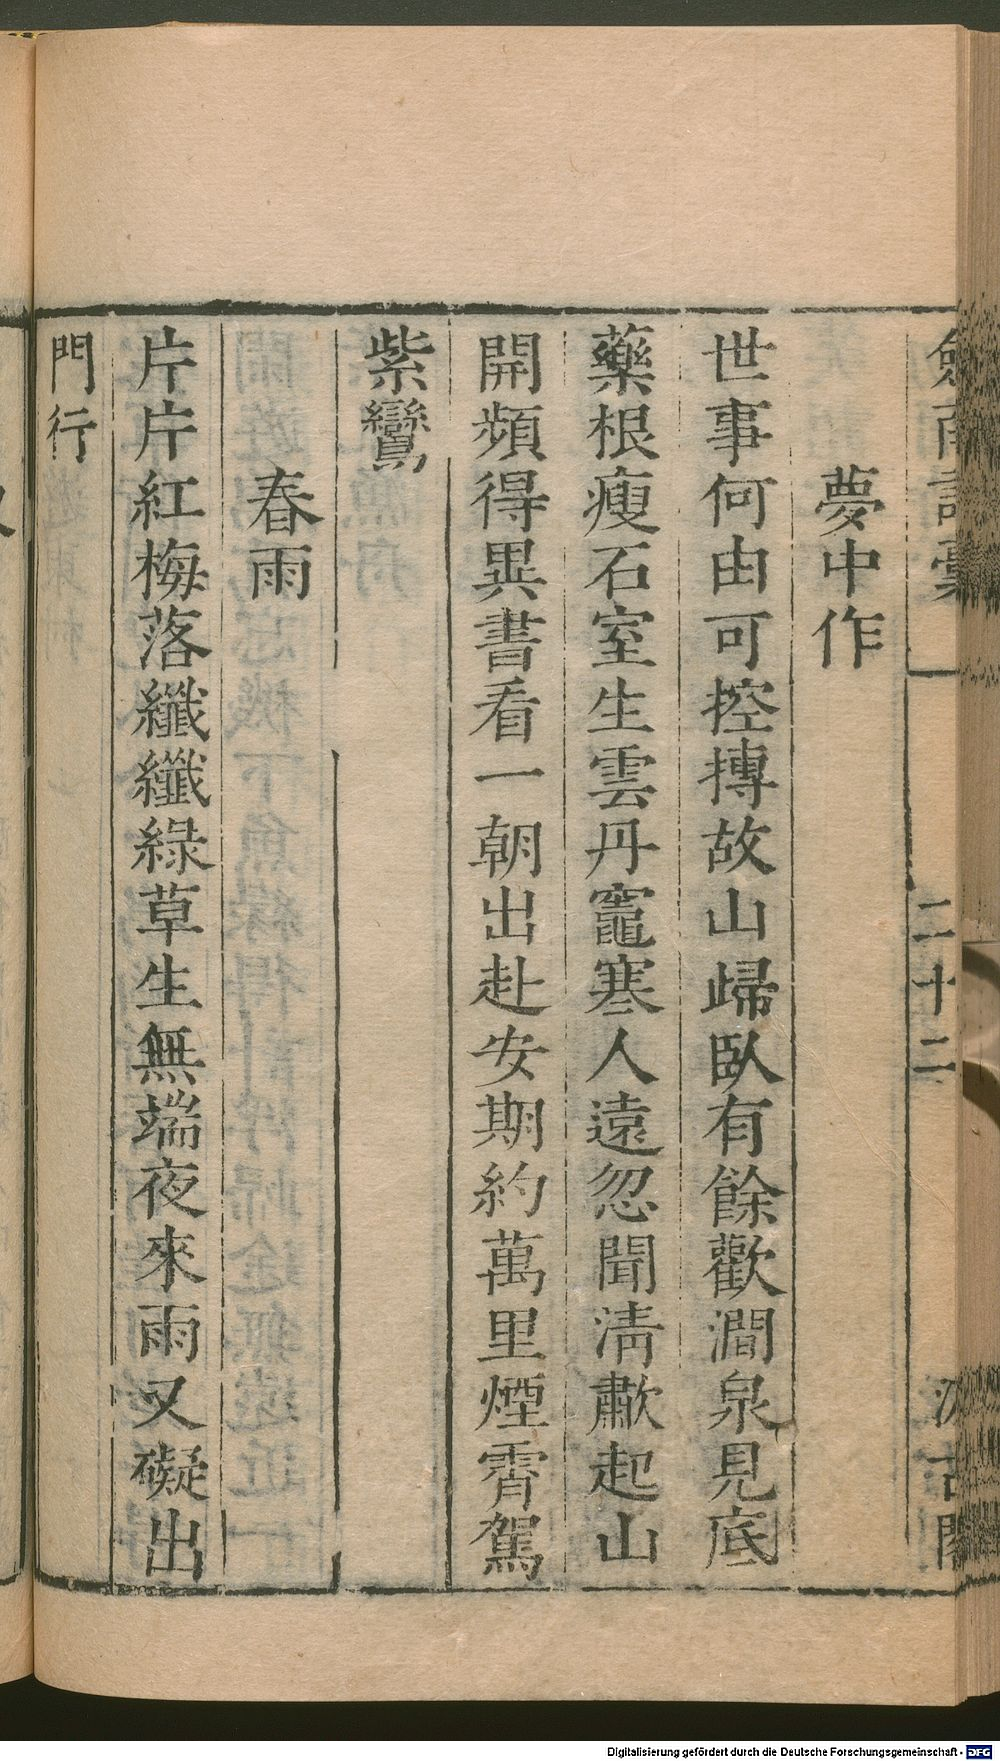 劍南詩稾
二十二
汲古閣
夢中作
世事何由可控摶故山歸臥有餘歡澗泉見底
藥根瘦石室生雲丹竈寒人遠忽聞淸歗起山
開頻得異書看一朝出赴安期約萬里煙霄駕
紫鸞
春雨
片片紅梅落纖纖綠草生無端夜來雨又礙出
門行
又
Digitalisierung gefördert durch die Deutsche Forschungsgemeinschaft - DFG